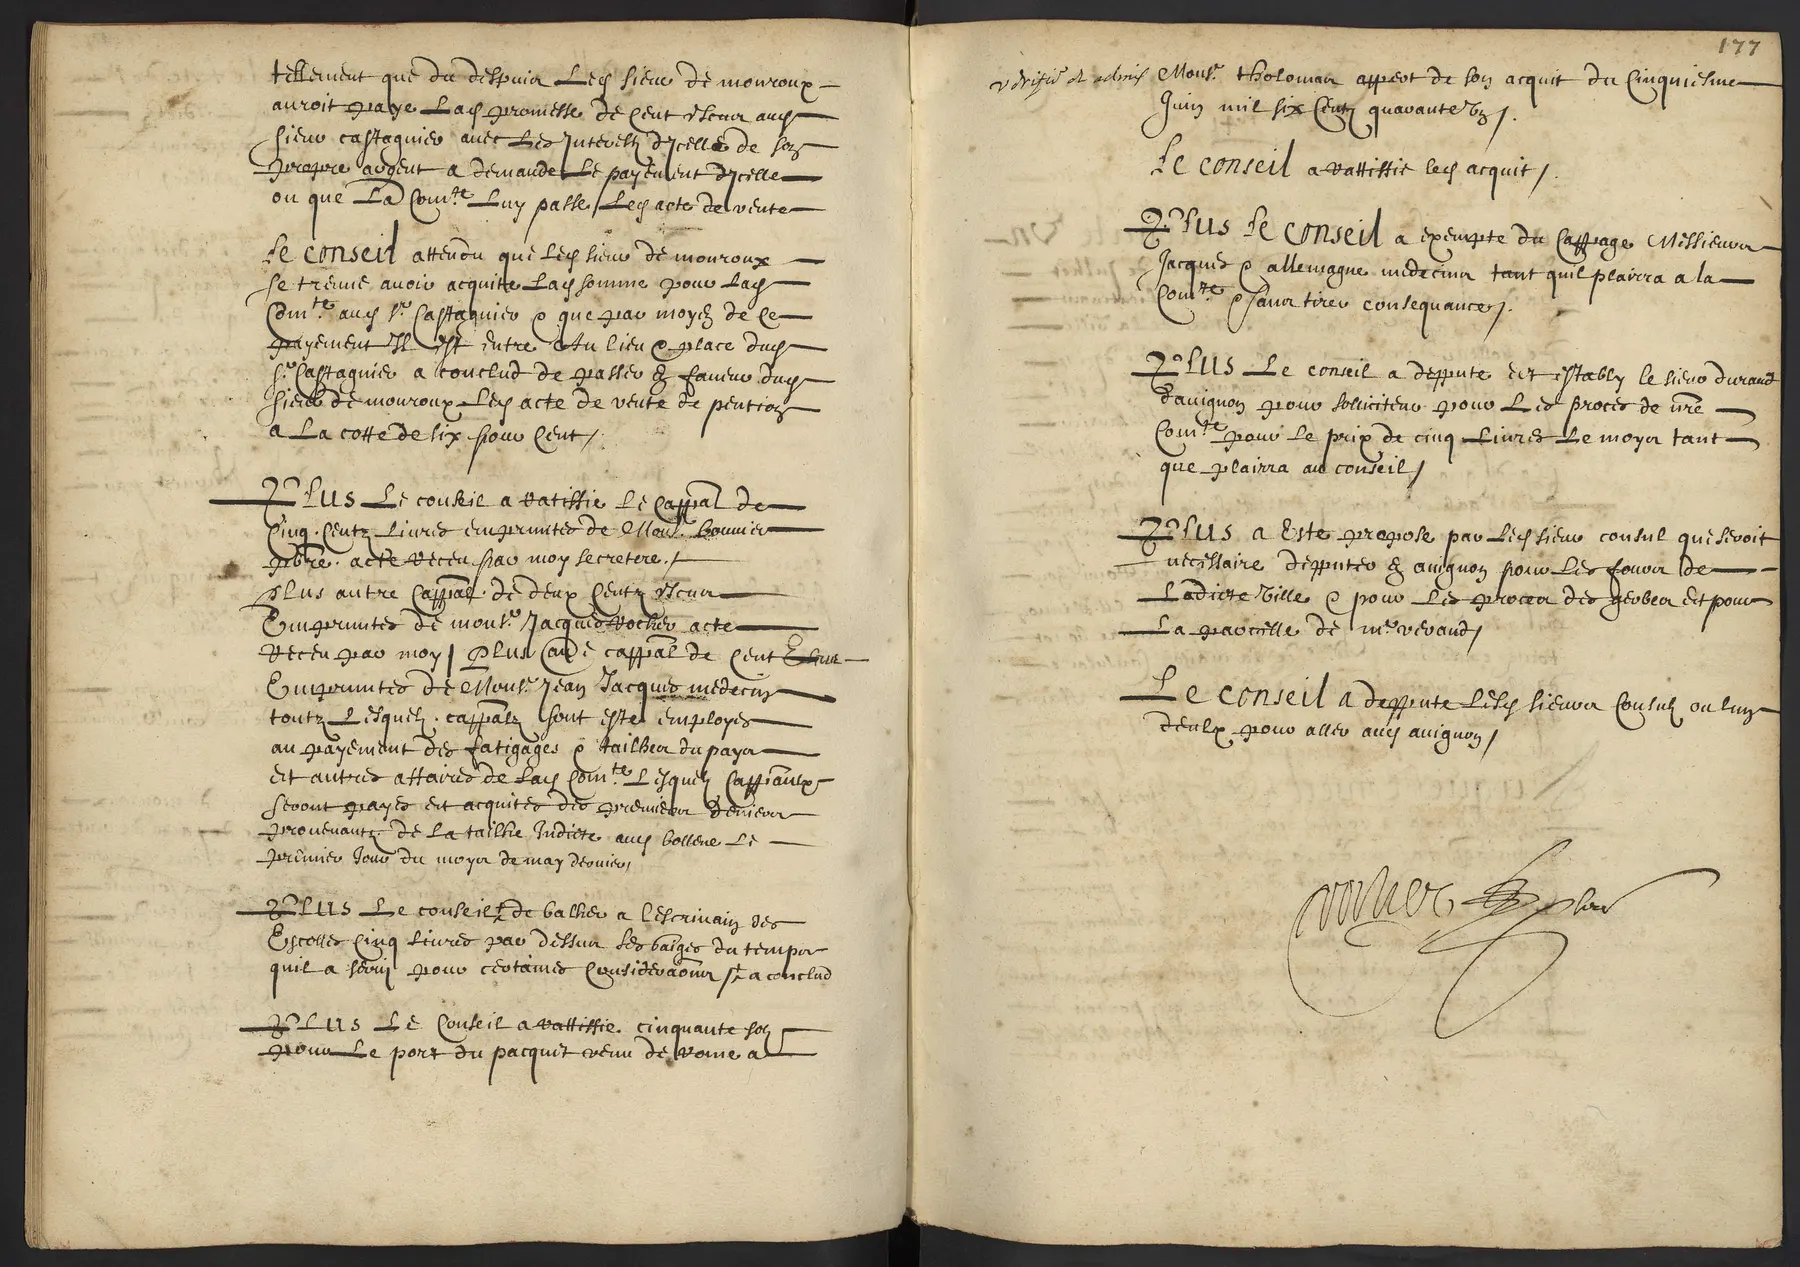 tellement que du despuis Led sieur de mouroux
auroit paye Lad promesse de cent escus aud
sieur castagnier avec Les Interestz dicelle de son
propre argent a demande Le payement dicelle
ou que La Com.te Luy passe Led acte de vente
Le conseil attendu que led sieur de mouroux
se treuve avoir acquitte Lad somme pour Lad
Com.te aud s.r Castagnier & que par moyen de ce
payement Il est entre Au lieu & place dud
s.r Castagnier a conclud de passer En faveur dud
sieur de mouroux Led acte de vente de pention
a La cotte de six pour Cent /.
Plus Le conseil a ratiffie Le cappal de
Cinq Centz Livres empruntes de Mons.r bonnier
pbre acte receu par moy secretere /.
Plus autre Cappal de deux Centz escus
Empruntes de mons.r Jacques rochier acte
Receu par moy / Plus cappal de Cent Escus
Empruntes de Mons.r Jean Jacques medecin
toutz Lesquelz cappalz sont este employes
au payement des fatigages & tailhes du pays
Et autres affaires de Lad Com.te Lesquelz Cappaulx
seront payes Et acquites des premiers deniers
provenantz de La tailhe Indicte aud bollene Le
premier Jour du moys de may dernier /
Plus Le conseil de bailher a lescrivain des
Escolles Cinq Livres par dessus ses gaiges du temps
quil a servy pour certaines Considerations a conclud
Plus Le Conseil a rattiffie cinquante solz
pour Le port du pacquet venu de rome a
177
Mons.r tholomas appert de son acquit du Cinquiesme
Juin mil six Centz quarante Un /.
Le conseil a rattiffie led acquit /.
Plus Le conseil a exempte du Cappage Messieurs
Jacques & allemagne medecins tant quil plairra a la
Com.te & sans tirer consequance /.
Plus Le conseil a deppute Et estably le sieur durand
davignon pour solliciteur pour Les proces de n.re
Com.te pour Le prix de cinq Livres Le moys tant
que plairra au conseil /
Plus a Este propose par Led sieur consul que seroit
necessaire depputer En avignon pour Les fours de
Ladicte Ville & pour Les proces des gerbes Et pour
La parcelle de m.r verand /
Le conseil a deppute Lesd sieurs Consulz ou lun
deulx pour aller aud avignon /